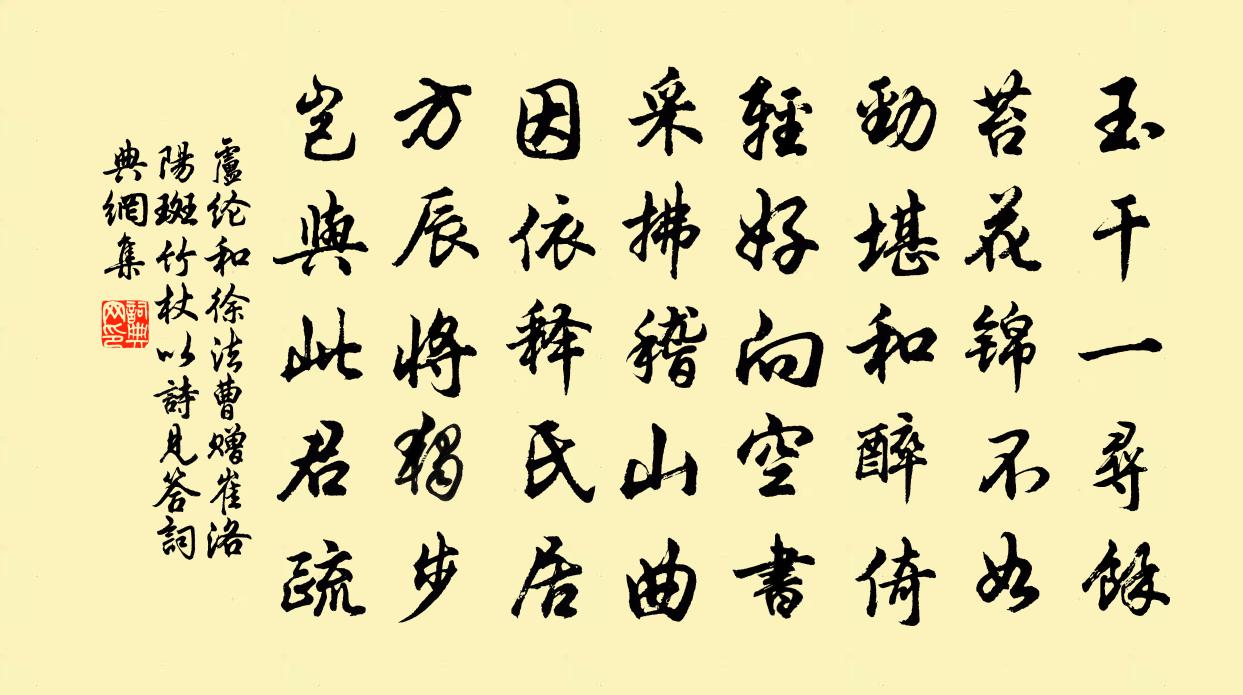 玉干一尋餘
苔花錦不如
勁堪和醉倚
輕好向空書
采拂稽山曲
因依释氏居
方辰將獨步
豈與此君疏
盧綸和徐法曹贈崔洛
陽斑竹杖以詩見答詞
典網集
詞典网印